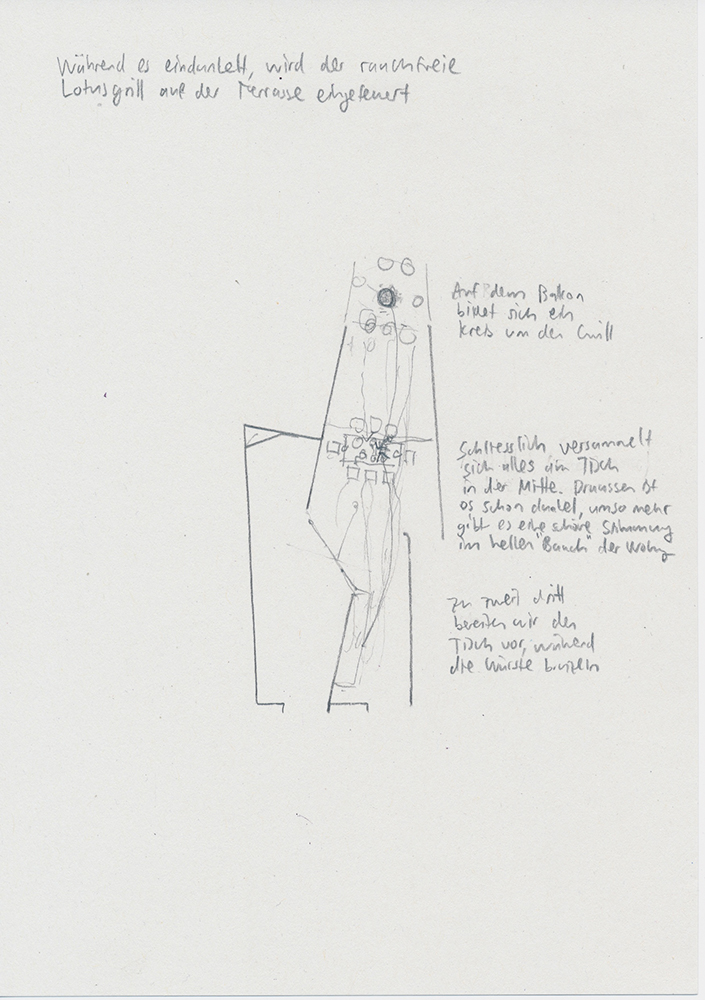 Während es eindunkelt, wird der rauchfreie
Lotusgrill auf der Terrasse eingefeuert
Auf dem Balkon
bildet sich ein
Kreis um den Grill
Schliesslich versammelt
sich alles am Tisch
in der Mitte. Draussen ist
es schon dunkel, umso mehr
gibt es eine schöne Stimmung
im hellen "Bauch" der Wohng
zu zweit dritt
bereiten wir den
Tisch vor, während
die Würste brutzeln